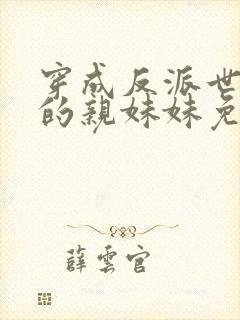 穿成反派世
的親妹妹免
薛雲官